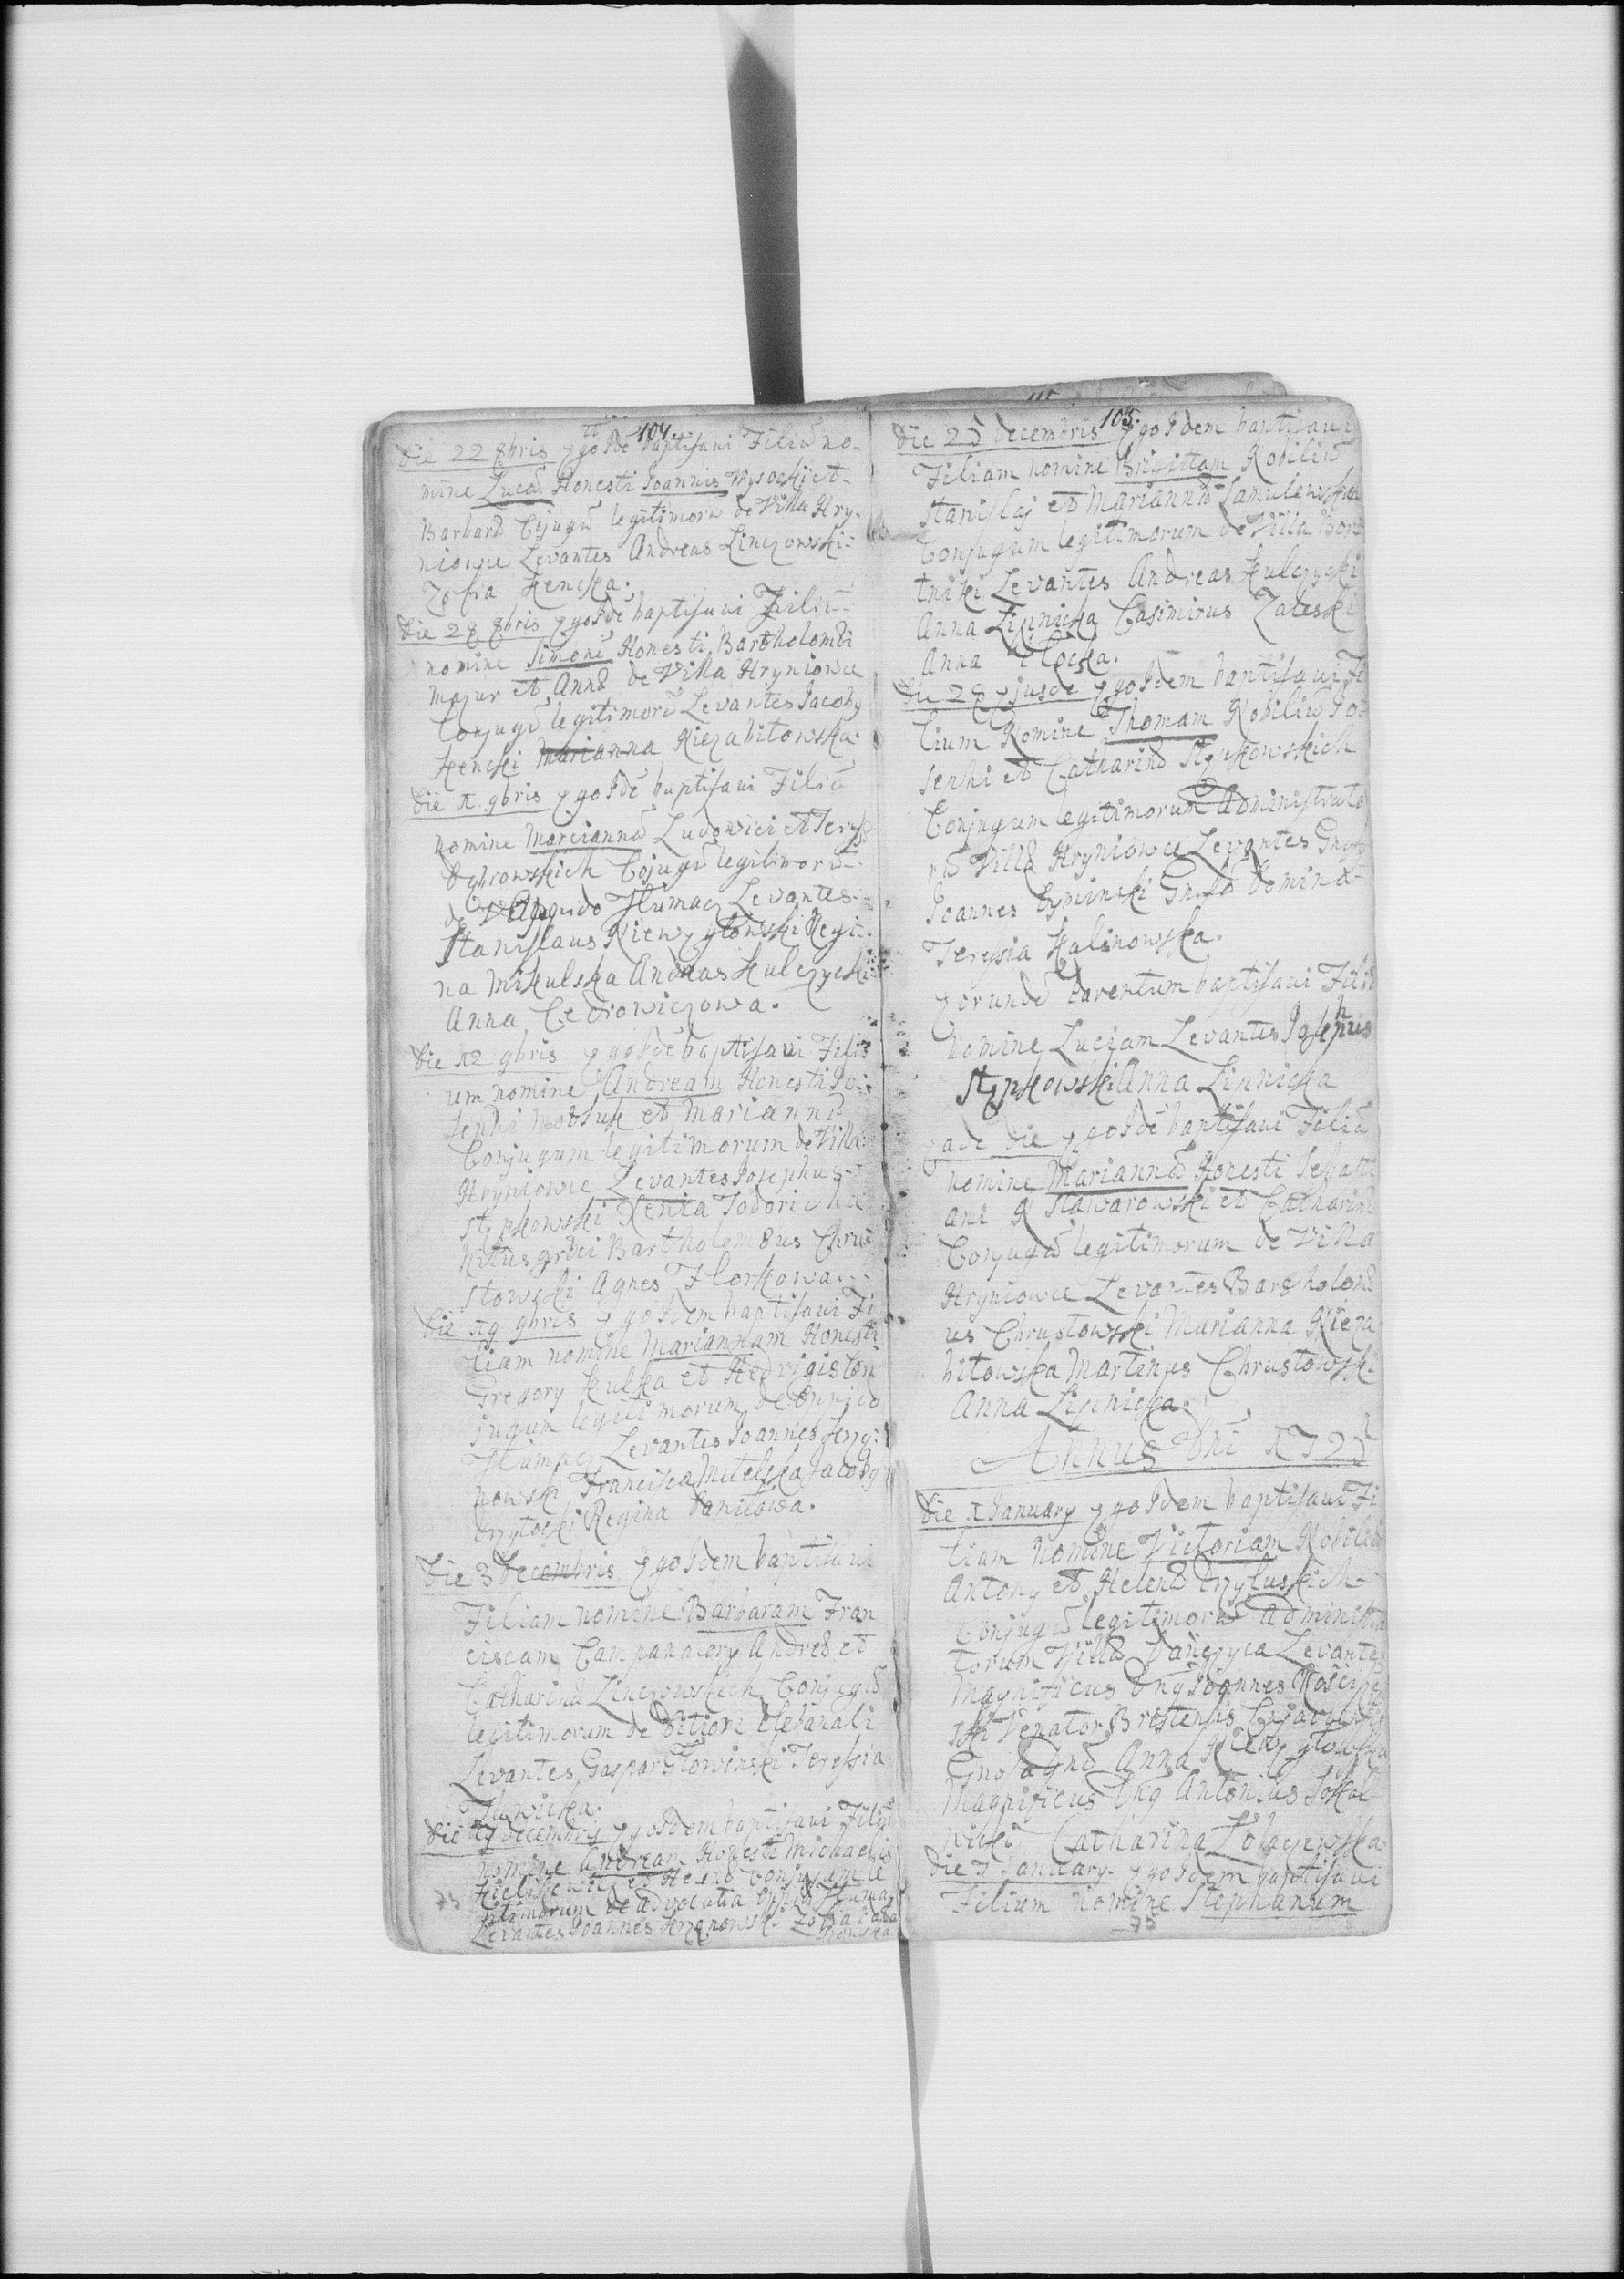 104.
Die 22 8bris Ego Idē baptisavi Filiū no-
mine Lucā Honesti Joannis Wysocki et
Barbaræ Cōjugū legitimorū de Villa Hry-
niowce Levantes Andreas Linczowski
Zofia Hencka.
Die 28 8bris Ego Idē baptisavi Filiū
nomine Simonē Honesti Bartholomæi
Mazur et Annæ de Villa Hryniowce
Conjugū legitimorū Levantes Jacoby
Hencki Marianna Niezabitowska.
Die π 9bris Ego Idē baptisavi Filiā
nomine Mariannā Ludowici et Terysiæ
Dąbrowskich Cōjugū legitimorū
de Oppido Tłumacz Levantes
Stanislaus Niewzgłowski Regi-
na Mikulska Andreas Kulczycki
Anna Cedrowiczowa.
Die π2 9bris Ego Idē baptisavi Fili-
um nomine Andream Honesti Jo-
sephi et Mariannæ
Conjugum legitimorum de Villa
Hryniowce Levantes Josephus
Stępkowski Xenia Todoricha
Ritus græci Bartholomæus Chru-
stowski Agnes Florkowa.
Die π9 9bris Ego Idem baptisavi Fi-
liam nomine Mariannam Honesti
Gregory Kulka et Hedvigis Con-
jugum legitimorum de Oppido
Tłumacz Levantes Joannes
nowski Francisca Mitelska Jacoby
Regina Daniłowa.
Die 3 Decembris Ego Idem baptisavi
Filiam nomine Barbaram Fran
ciscam Campanatory Andreæ et
Catharinæ Linczowskich Conjugū
legitimorum de Ditione Plebanali
Levantes Gaspar Głowinski Teressia
Iwicka.
Die π7 Decembris Ego Idem baptisavi Filiū
nomine Andream Honesti Michaelis
et Helenæ Conjugum le
gitimorum de advocatia Oppidi Tłumacz
Levantes Joannes Zofia
75
105.
Die 25 Decembris Ego Idem baptisavi
Filiam nomine Brigittam Nobiliū
Stanislaj et Mariannæ Samulewskich
Conjugum legitimorum de Villa Bor-
tniki Levantes Andreas Kulczycki
Anna Lipnicka Casimirus Zaleski
Anna
Die 28 Ejusdē Ego Idem baptisavi Fi
lium Nomine Thomam Nobiliū Jo-
sephi et Catharinæ Stępkowskich
Conjugum legitimorum Administrato
rū Villæ Hryniowce Levantes
Joannes Domina
Terysia Kalinowska.
Eorundē Parentum baptisavi Filiā
Nomine Luciam Levantes Josephus
Stępkowski Anna Lipnicka
Eadē Die Ego Idē baptisavi Filiā
nomine Mariannā Honesti Sebasti
ani Nawarowski et Catharinæ
Conjugū legitimorum de Villa
Hryniowce Levantes Bartholomæ
us Chrustowski Marianna Nieza
bitowska Martinus Chrustowski
Anna Lipnicka.
Annus Dni π725
Die π January Ego Idem baptisavi Fi
liam Nomine Victoriam Nobiliū
Antony et Helenæ
Conjugū legitimorū Administra
torum Villæ Levantes
Magnificus Dnġ Joannes Kościesz
ski Venator Brestensis
Anna
Magnificus Dnġ Antonius Sokol
nicki Catharina
Die π January Ego Idem baptisavi
Filium Nomine Stephanum
75